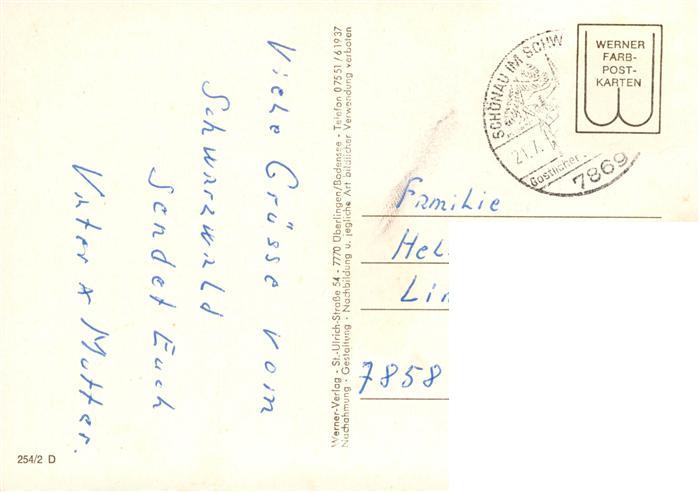 Viele Grüsse vom
Schwarzwald
Sendet Euch
Vater & Mutter.
254/2 D
Werner-Verlag - St.-Ulrich-Straße 54 - 7770 Überlingen/Bodensee - Telefon 07551/61937
Nachahmung - Gestaltung - Nachbildung u. jegliche Art bildlicher Verwendung verboten
SCHÖNAU IM SCHW
21.7.
Gastlicher
7869
WERNER
FARB-
POST-
KARTEN
Familie
Hel
Lin
7858